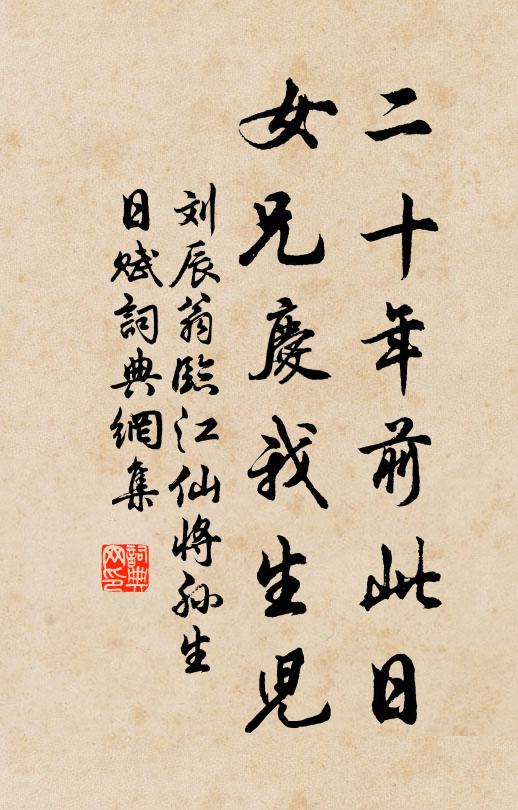 二十年前此日
女兄慶我生児
刘辰翁臨江仙将孙生
日赋詞典網集
詞典
网印